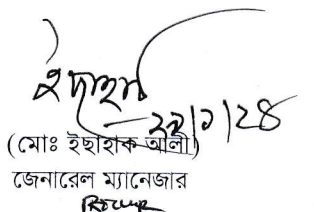 ২৯/১/২৪
(মোঃ ইছাহাক আলী)
জেনারেল ম্যানেজার